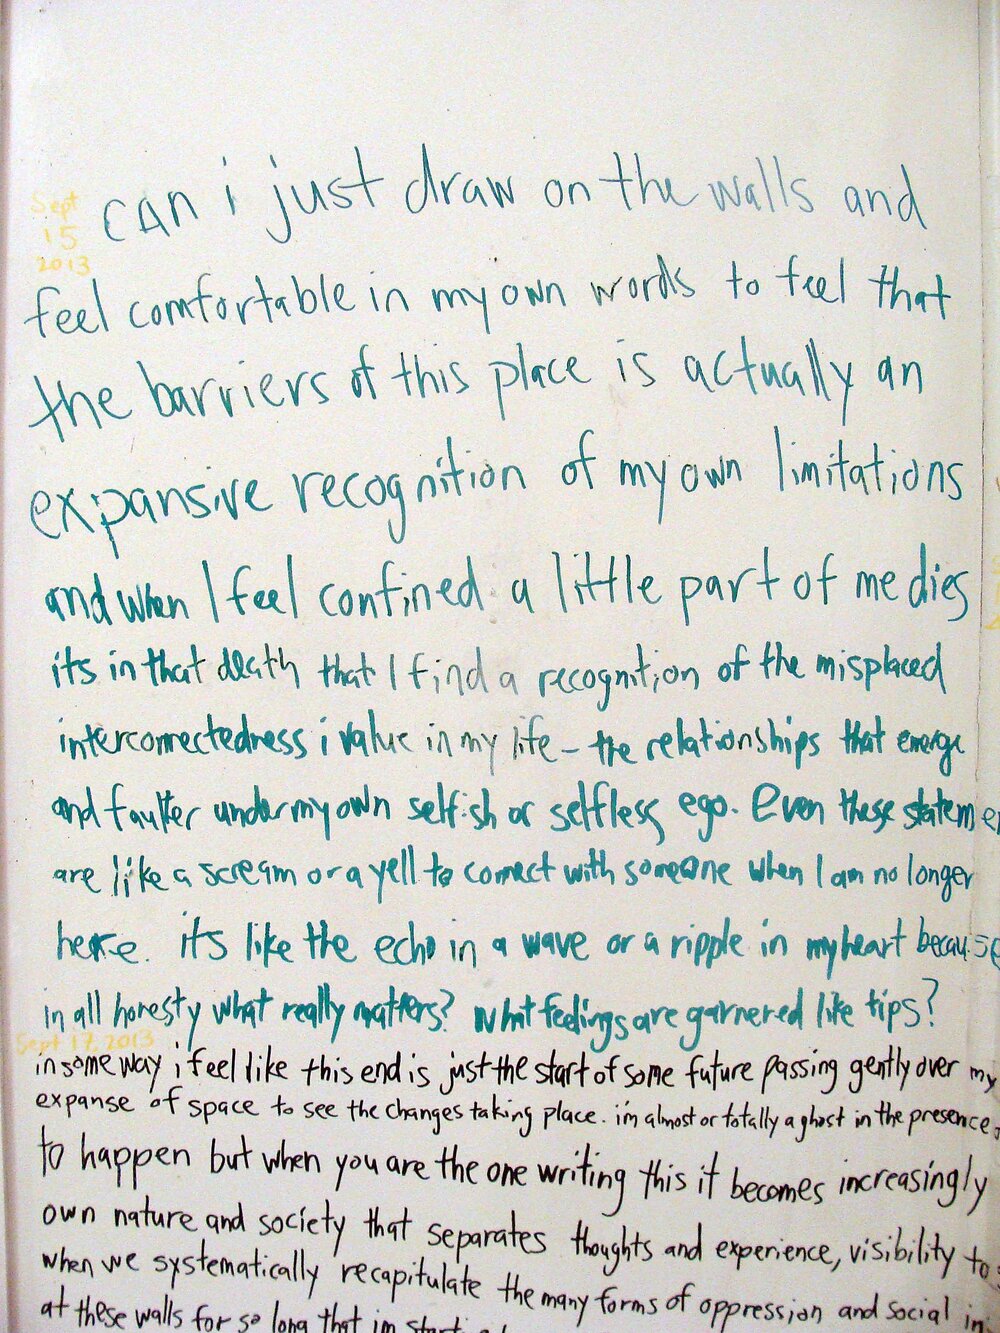 Sept
15
2013
can i just draw on the walls and
feel comfortable in my own words to feel that
the barriers of this place is actually an
expansive recognition of my own limitations
and when I feel confined a little part of me dies
its in that death that I find a recognition of the misplaced
interconnectedness i value in my life - the relationships that emerge
and faulter under my own selfish or selfless ego. Even these
are like a scream or a yell to connect with someone when I am no longer
here. it's like the echo in a wave or a ripple in my heart because
in all honesty what really matters? what feelings are garnered like tips?
Sept 17, 2013
in some way i feel like this end is just the start of some future passing gently over my
expanse of space to see the changes taking place. i'm almost or totally a ghost in the presence
to happen but when you are the one writing this it becomes increasingly
own nature and society that separates thoughts and experience, visibility to
when we systematically recapitulate the many forms of oppression and social
at these walls for so long that im